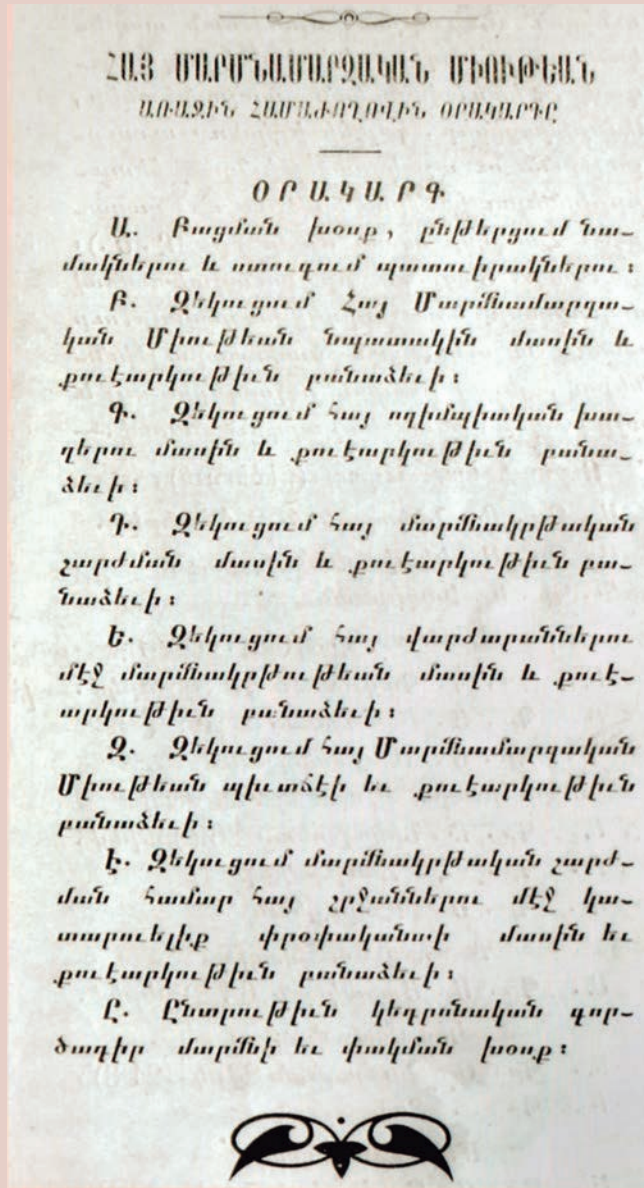 ՀԱՅ ՄԱՐՄՆԱՄԱՐԶԱԿԱՆ ՄԻՈՒԹԵԱՆ
ԱՌԱՋԻՆ ՀԱՄԱԺՈՂՈՎԻՆ ՕՐԱԿԱՐԳԸ
ՕՐԱԿԱՐԳ
Ա. Բացման խօսք, ընթերցում նա–
մակներու և ստուգում պատուիրակներու:
Բ. Զեկուցում Հայ Մարմնամարզա–
կան Միութեան նպատակին մասին և
քուէարկութիւն բանաձեւի:
Գ. Զեկուցում հայ ողիմպիական խա–
ղերու մասին և քուէարկութիւն բանա–
ձեւի:
Դ. Զեկուցում հայ մարմնակրթական
շարժման մասին և քուէարկութիւն բա–
նաձեւի:
Ե. Զեկուցում հայ վարժարաններու
մէջ մարմնակրթութեան մասին և քուէ–
արկութիւն բանաձեւի:
Զ. Զեկուցում հայ Մարմնամարզական
Միութեան պիւտճէի եւ քուէարկութիւն
բանաձեւի:
Է. Զեկուցում մարմնակրթական շարժ–
ման համար հայ շրջաններու մէջ կա–
տարուելիք փրօփականտի մասին եւ
քուէարկութիւն բանաձեւի:
Ը. Ընտրութիւն կեդրոնական գոր–
ծադիր մարմնի եւ փակման խօսք: